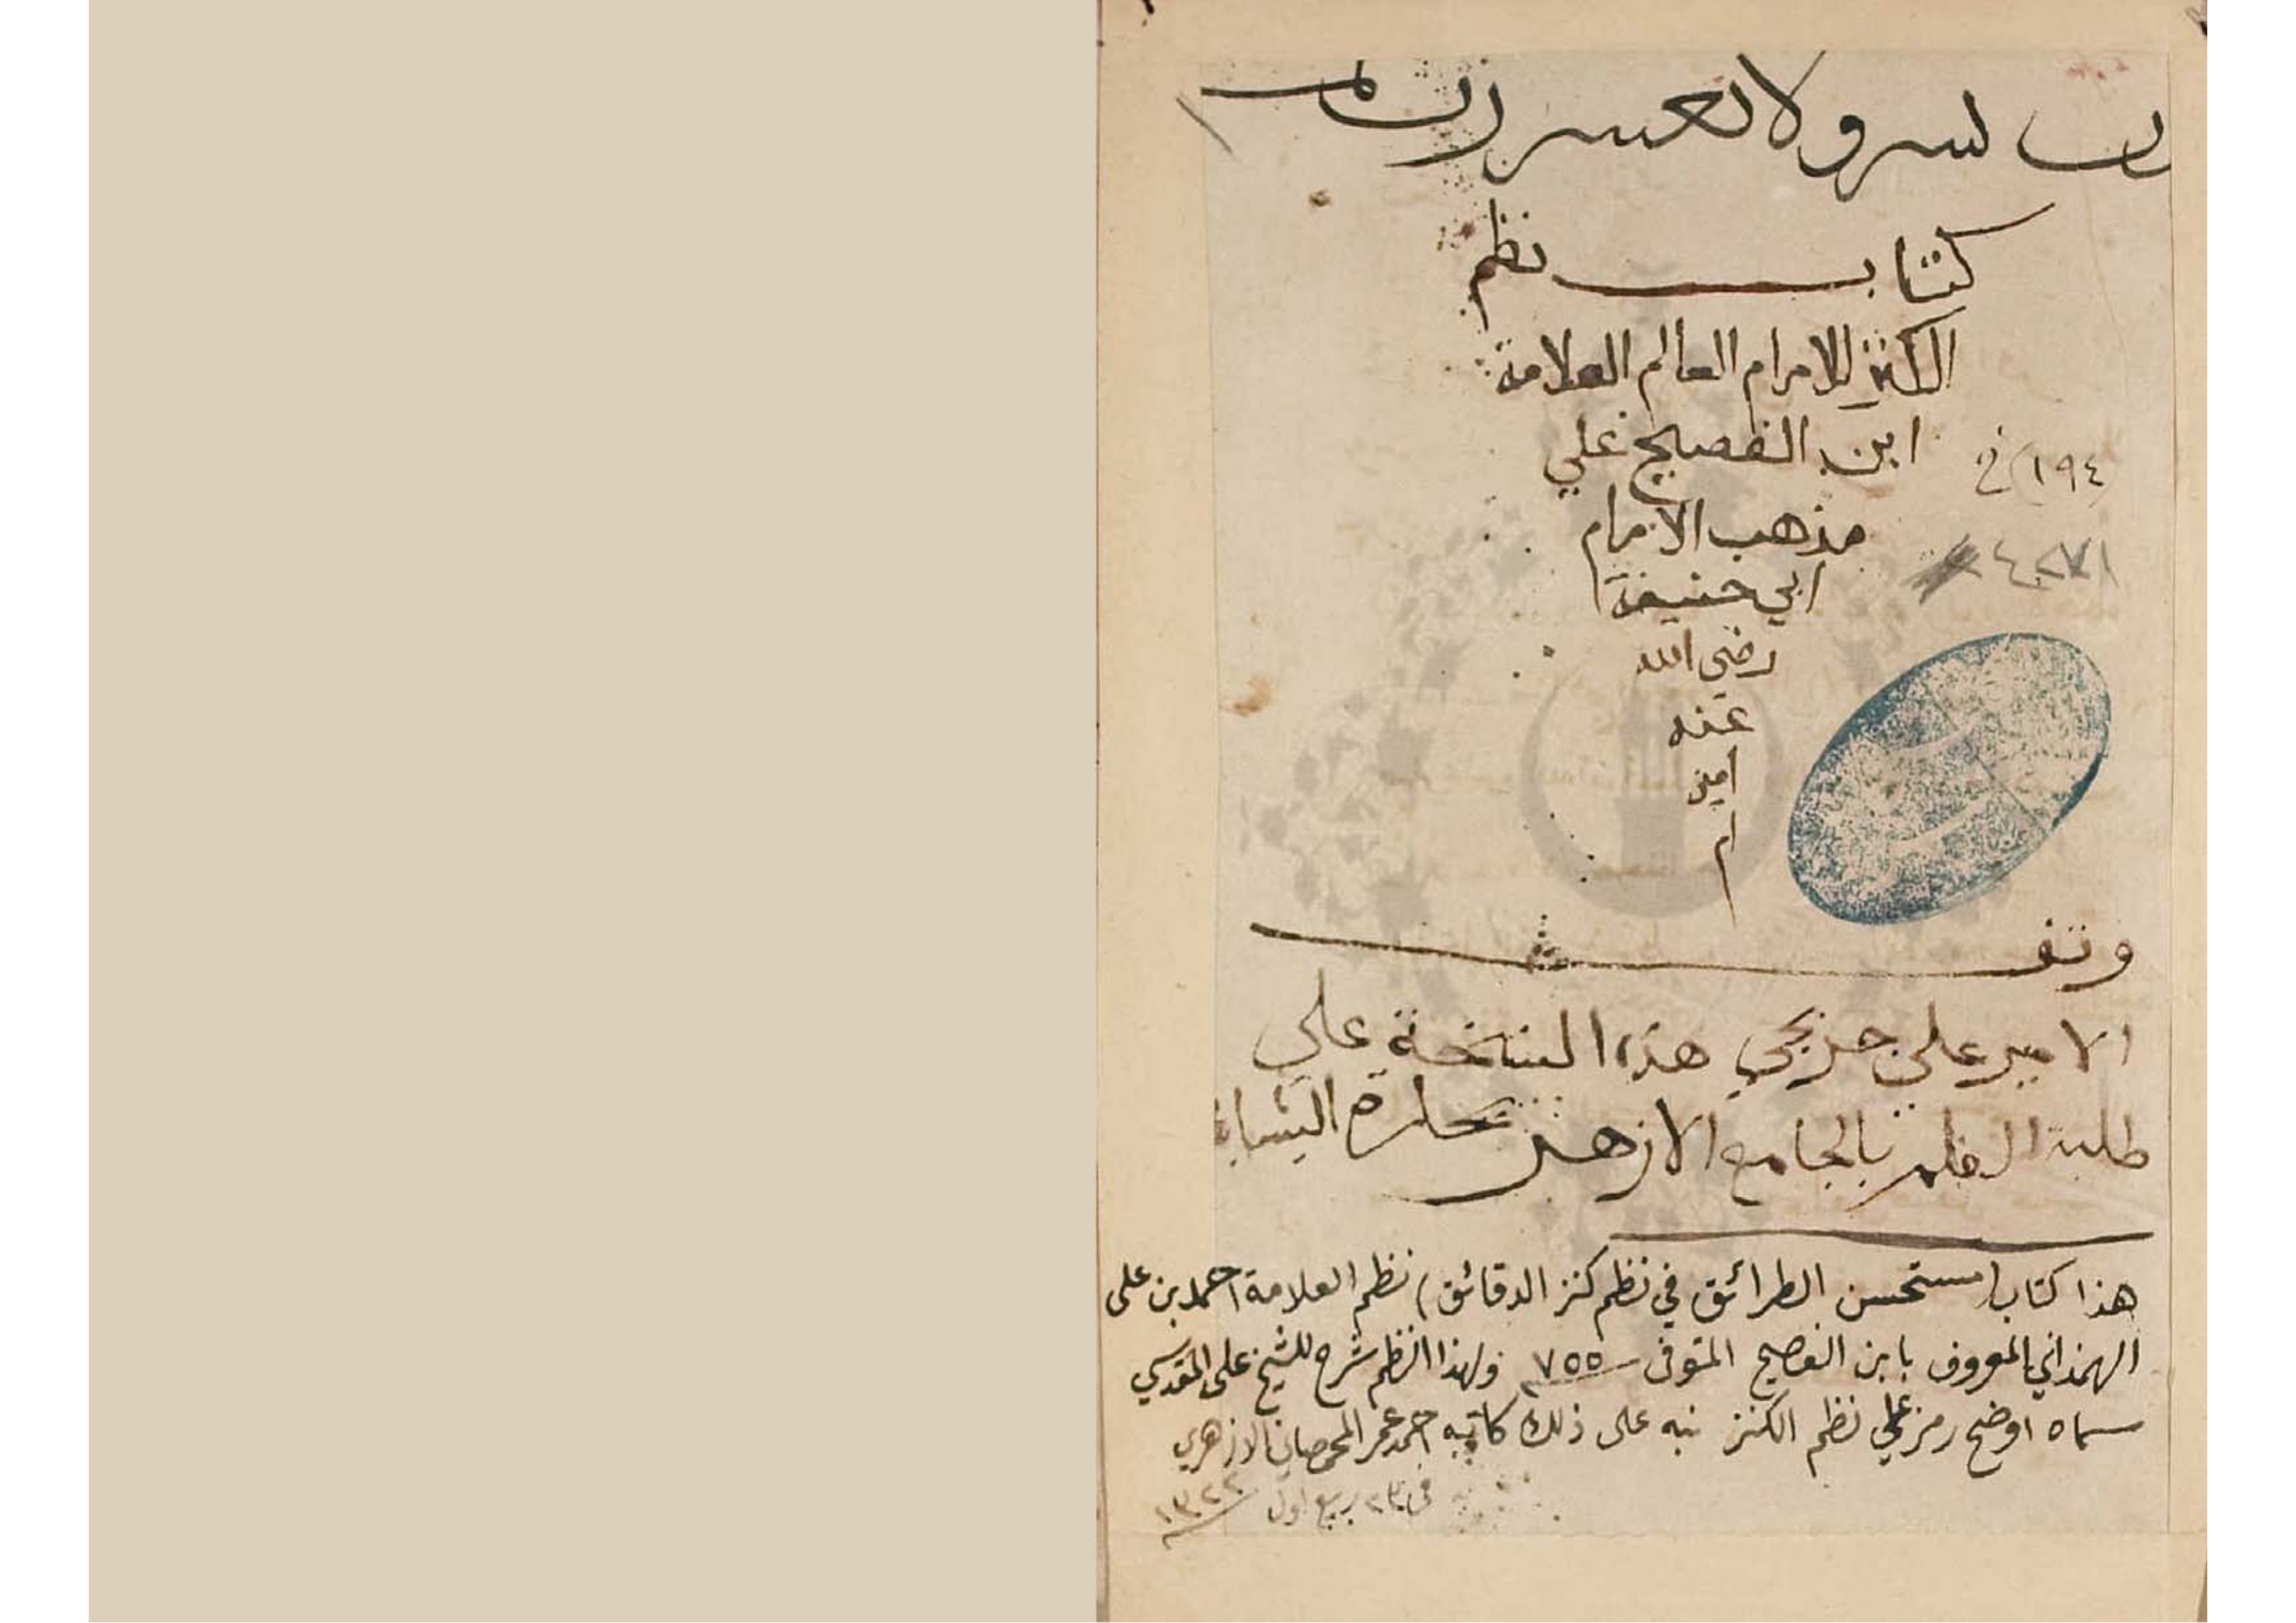 رب يسر ولا تعسر رب تمم
كتاب نظم
الكنز للامام العالم العلامة
ابن الفصيح علي
١٩٤
مذهب الامام
٤٢٧١
ابي حنيفة
رضي الله
عنه
امين
ام
وقف
الامير علي جربجي هذه النسخة علي
طلبة العلم بالجامع الازهر بحارة
هذا كتاب (مستحسن الطرائق في نظم كنز الدقائق) نظم العلامة احمد بن على
الهمذاني المعروف بابن الفصيح المتوفى ٧٥٥ ولهذا النظم شرح للشيخ على المقدسي
سماه اوضح رمز على نظم الكنز نبه على ذلك كاتبه احمد عمر المحمصاني الازهري
في ٢٣ ربيع اول ١٣٢٢